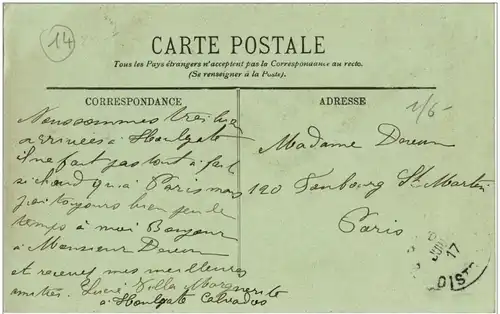 14
CARTE POSTALE
Tous les Pays étrangers n'acceptent pas la Correspondance au recto.
(Se renseigner à la Poste).
CORRESPONDANCE
Nous sommes très bien
arrivées à Houlgate
il ne fait pas tout à fait
si chaud qu'à Paris mais
j'ai toujours bien peu de
temps à moi Bonjour
à Monsieur
et recevez mes meilleures
amitiés. Villa Marguerite
à Houlgate Calvados
ADRESSE
Madame
120 Faubourg St Martin
Paris
17
DIST